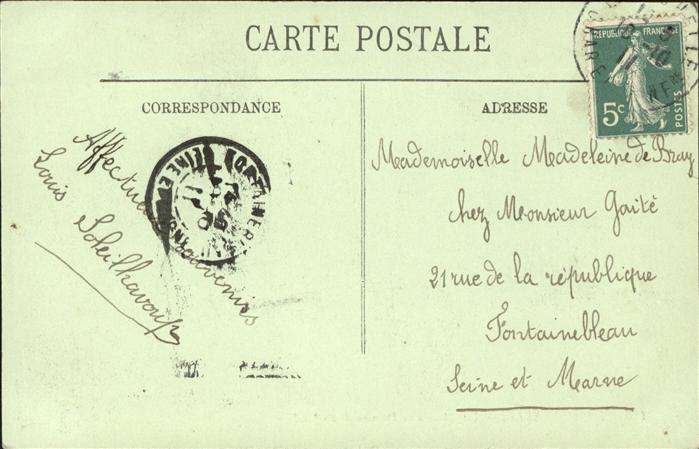 CARTE POSTALE
CORRESPONDANCE
ADRESSE
RÉPUBLIQUE FRANÇAISE
5c
POSTES
Affectueux souvenirs
Louis Soleilhavoup
Mademoiselle Madeleine de Bray
chez Monsieur Gaité
21 rue de la république
Fontainebleau
Seine et Marne
SEINE E